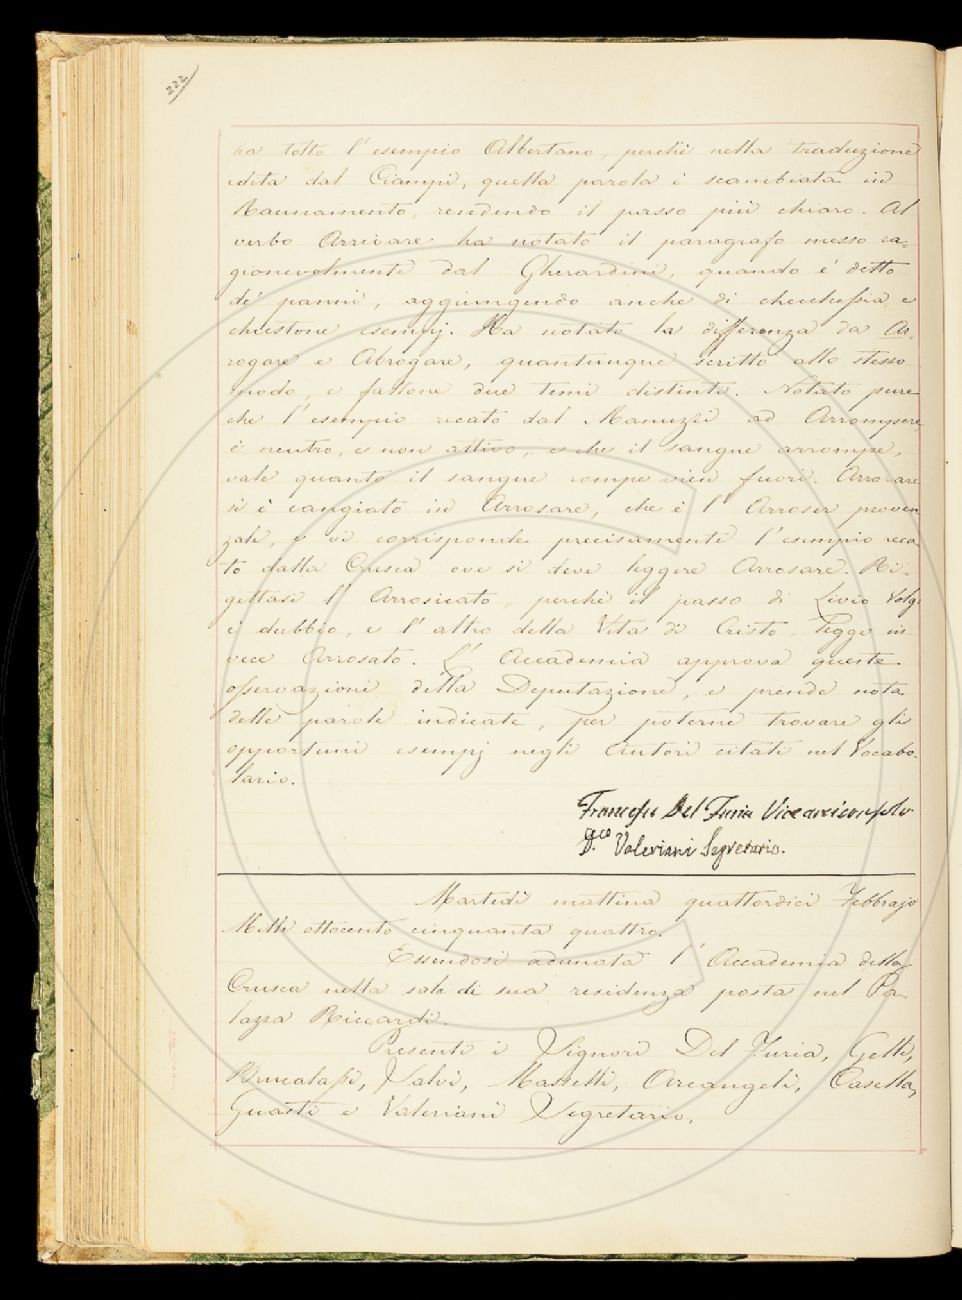 222
ha tolto l'esempio Albertano, perchè nella traduzione
edita dal Ciampi, quella parola è scambiata in
Raunamento, rendendo il passo più chiaro. Al
verbo Arrivare ha notato il paragrafo messo ra-
gionevolmente dal Gherardini, quando è detto
de' panni, aggiungendo anche di checchessia, e
chiestone esempj. Ha notato la differenza da Ar-
rogare e Abrogare, quantunque scritto allo stesso
modo, e fattone due temi distinti. Notato pure
che l'esempio recato dal Manuzzi ad Arrompere
è neutro, e non attivo, e che il sangue arrompe,
vale quanto il sangue rompe vien fuori. Arrorare
si è cangiato in Arrosare, che è l'Arroser proven
zale, e vi corrisponde precisamente l'esempio reca-
to dalla Crusca ove si deve leggere Arrosare. Ri-
gettasi l'Arrosicato, perchè il passo di Livio Volg.
è dubbio, e l'altro della Vita di Cristo, legge in-
vece Arrosato. L'Accademia approva queste
osservazioni della Deputazione, e prende nota
delle parole indicate, per poterne trovare gli
opportuni esempj negli Autori citati nel Vocabo-
lario.
Francesco Del Furia Vice arciconsolo
D.co Valeriani Segretario.
Martedì mattina quattordici Febbrajo
Mille ottocento cinquanta quattro.
Essendosi adunata l'Accademia della
Crusca nella sala di sua residenza posta nel Pa-
lazzo Riccardi.
Presenti i Signori Del Furia, Gelli,
Brucalassi, Salvi, Masselli, Arcangeli, Casella,
Guasti e Valeriani Segretario.